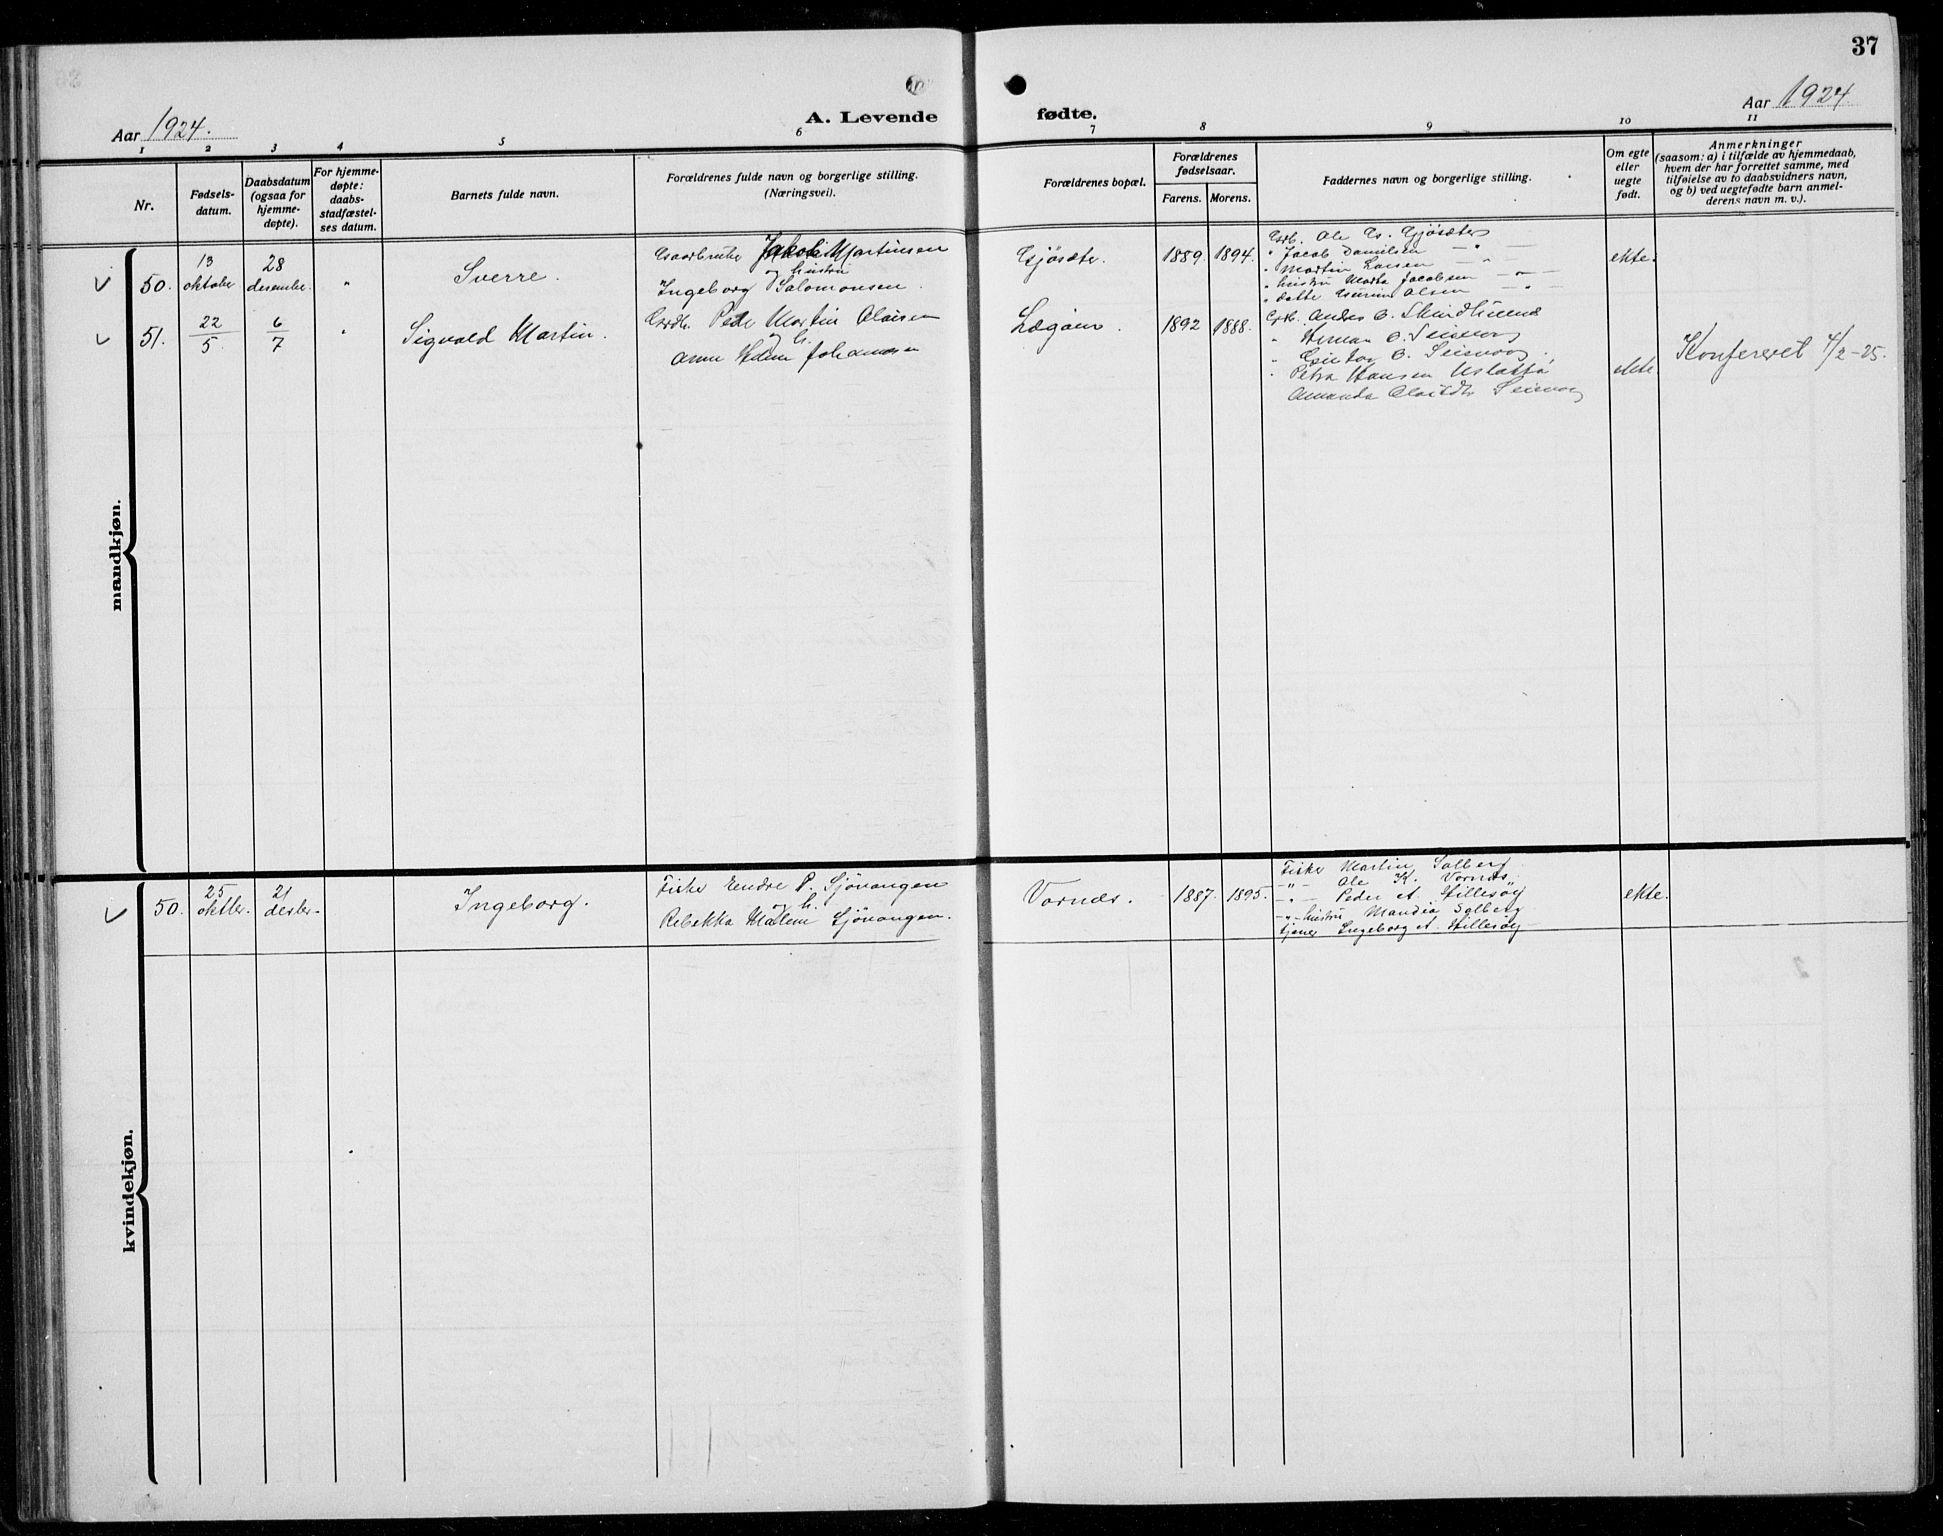 37
Aar 1924.
A. Levende fødte.
Aar 1924
1 2 3 4 5 6 7 8 9 10 11
Nr.
Fødsels-
datum.
Daabsdatum
(ogsaa for
hjemme-
døpte).
For hjemme-
døpte:
daabs-
stadfæstel-
ses datum.
Barnets fulde navn.
Forældrenes fulde navn og borgerlige stilling.
(Næringsvei).
Forældrenes bopæl.
Forældrenes
fødselsaar.
Farens. Morens.
Faddernes navn og borgerlige stilling.
Om egte
eller
uegte
født.
Anmerkninger
(saasom: a) i tilfælde av hjemmedaab,
hvem der har forrettet samme, med
tilføielse av to daabsvidners navn,
og b) ved uegtefødte barn anmel-
derens navn m. v.).
mandkjøn.
50. 13 oktober 28 desember. " Sverre.
Gaardbruker Jakob Martinsen
og hustru
Ingeborg Salomonsen.
Gjösæter. 1889. 1894.
Grb. Ole G. Gjösæter
" Jacob Danielsen — " —
" Martin Larsen — " —
" hustru Marta Jacobsen — " —
Olsen — " —
ekte.
51. 22/5 6/7 " Sigvald Martin.
Grdb. Peder Martin Olaisen
og h.
Anna Johansen
1892 1888.
Grb. Andreas
" Herman
"
" Petra Hansen
Amanda
ekte
Konfereret 4/2-25.
kvindekjøn.
50. 25 oktbr. 21 desbr. Ingeborg.
Fisker Endre P. Sjövangen
og h.
Rebekka Malene Sjövangen.
Vornes. 1887. 1895.
Fisker Martin Solberg
-"- Ole K. Vornes.
-"- Peder A. Hillesöy
-"- hustru Mandia Solberg
tjener Ingeborg A. Hillesöy
ekte.